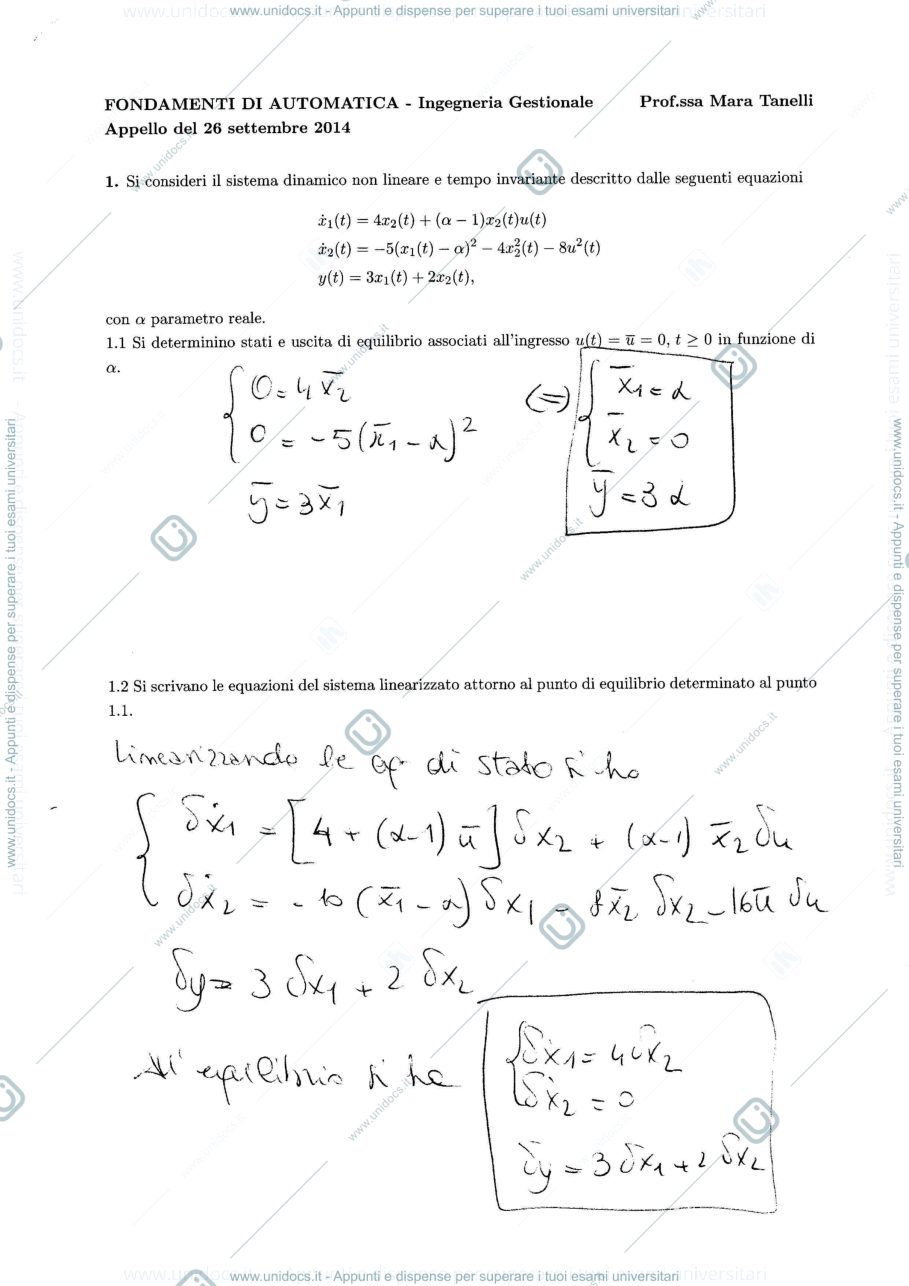 www.unidocs.it - Appunti e dispense per superare i tuoi esami universitari
FONDAMENTI DI AUTOMATICA - Ingegneria Gestionale Prof.ssa Mara Tanelli
Appello del 26 settembre 2014
1. Si consideri il sistema dinamico non lineare e tempo invariante descritto dalle seguenti equazioni
ẋ₁(t) = 4x₂(t) + (α − 1)x₂(t)u(t)
ẋ₂(t) = −5(x₁(t) − α)² − 4x₂²(t) − 8u²(t)
y(t) = 3x₁(t) + 2x₂(t),
con α parametro reale.
1.1 Si determinino stati e uscita di equilibrio associati all'ingresso u(t) = u̅ = 0, t ≥ 0 in funzione di
α.
0 = 4 x̅₂
0 = −5 (x̅₁ − α)²
y̅ = 3x̅₁
(=)
x̅₁ = α
x̅₂ = 0
y̅ = 3 α
1.2 Si scrivano le equazioni del sistema linearizzato attorno al punto di equilibrio determinato al punto
1.1.
Linearizzando le eq. di stato si ha
δẋ₁ = [4 + (α−1) u̅] δx₂ + (α−1) x̅₂ δu
δẋ₂ = − 10 (x̅₁ − α) δx₁ − 8x̅₂ δx₂ − 16u̅ δu
δy = 3 δx₁ + 2 δx₂
All'equilibrio si ha
δẋ₁ = 4δx₂
δẋ₂ = 0
δy = 3 δx₁ + 2 δx₂
www.unidocs.it - Appunti e dispense per superare i tuoi esami universitari
www.unidocs.it - Appunti e dispense per superare i tuoi esami universitari
www.unidocs.it - Appunti e dispense per superare i tuoi esami universitari